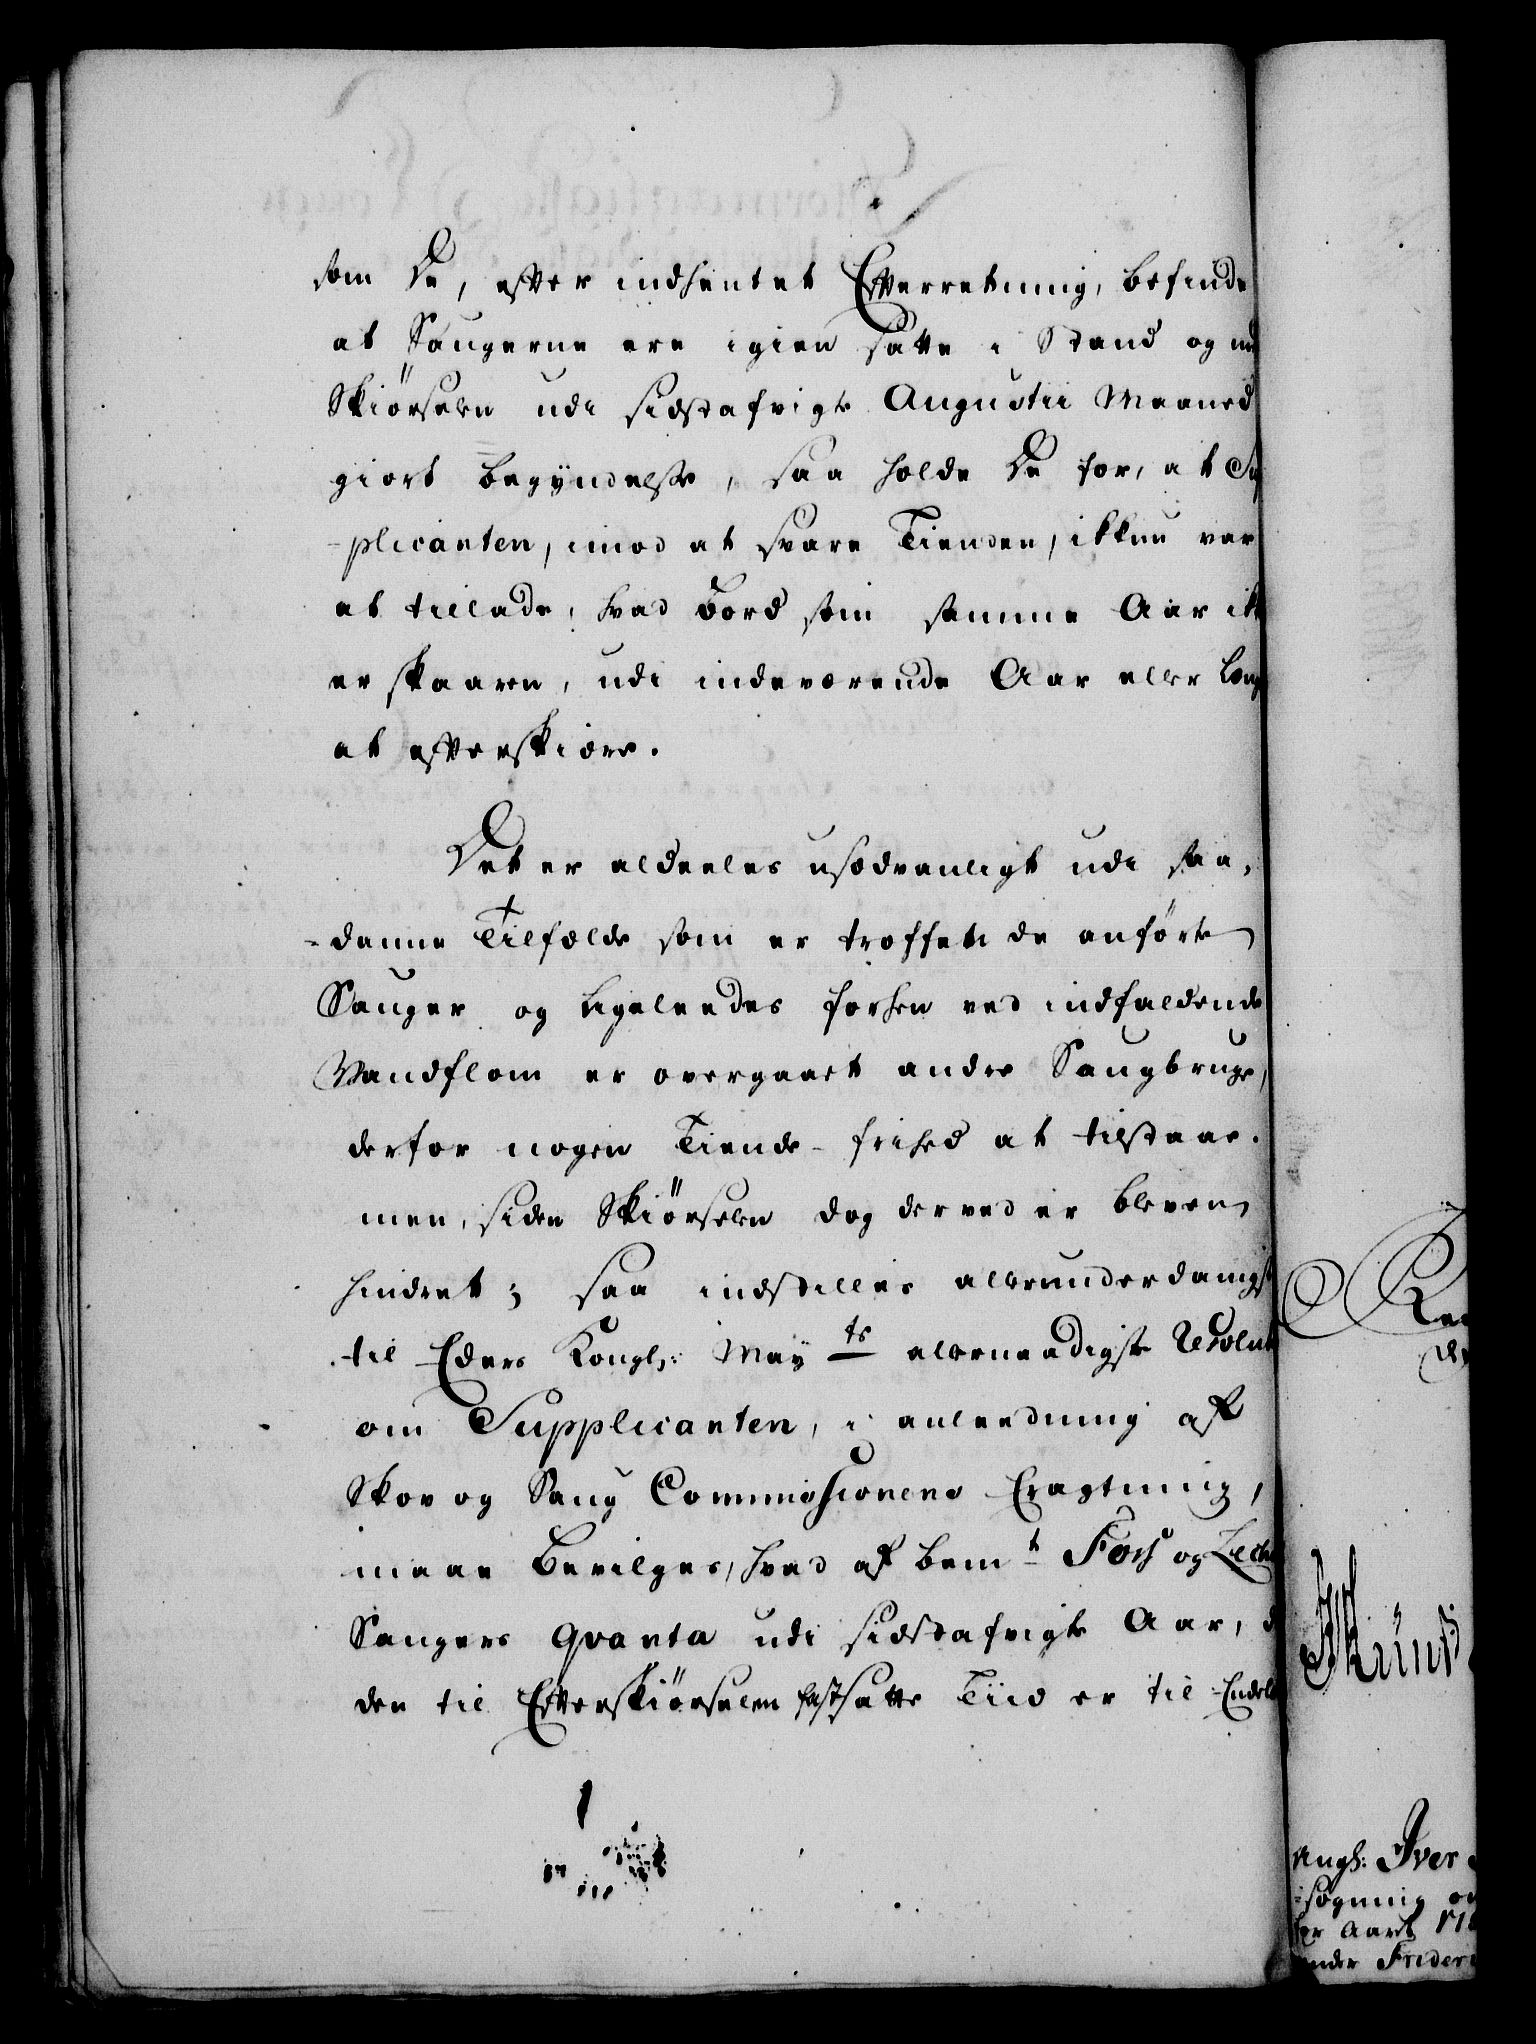 som De, efter indhentet Efterretning, befinde
at Saugerne ere igien satte i Stand og
Skiørselen udi sidstafvigte Augustii Maaned
giort begyndelse, saa holde De for, at Sup
-plicanten, imod at svare Tienden, ikkun var
at tillade, hvad Bord som samme Aar ikke
er skaaren, udi indeværende Aar eller
at efterskiære.
Det er aldeeles usædvanligt udi saa,
-danne Tilfælde som er troffen de anførte
Sauger og ligeleedes forhen ved indfaldende
Vandflom er overgaaet andre Saugbruge,
derfor nogen Tiende-frihed at tilstaae.
men, siden Skiørselen dog derved er bleven
hindret; saa indstilles allerunderdanigst
til Eders Kongl: May ts allernaadigste Resolut
om Supplicanten, i anleedning af
Skov og Saug Commissionens Eragtning,
maae bevilges, hvad af bem t Foss og
Saugers qvanta udi sidstafvigte Aar,
den til Efterskiørselen fastsatte Tiid er til Ende
Kongl: Iver
-søgning om
for Aaret 178
under Frideri